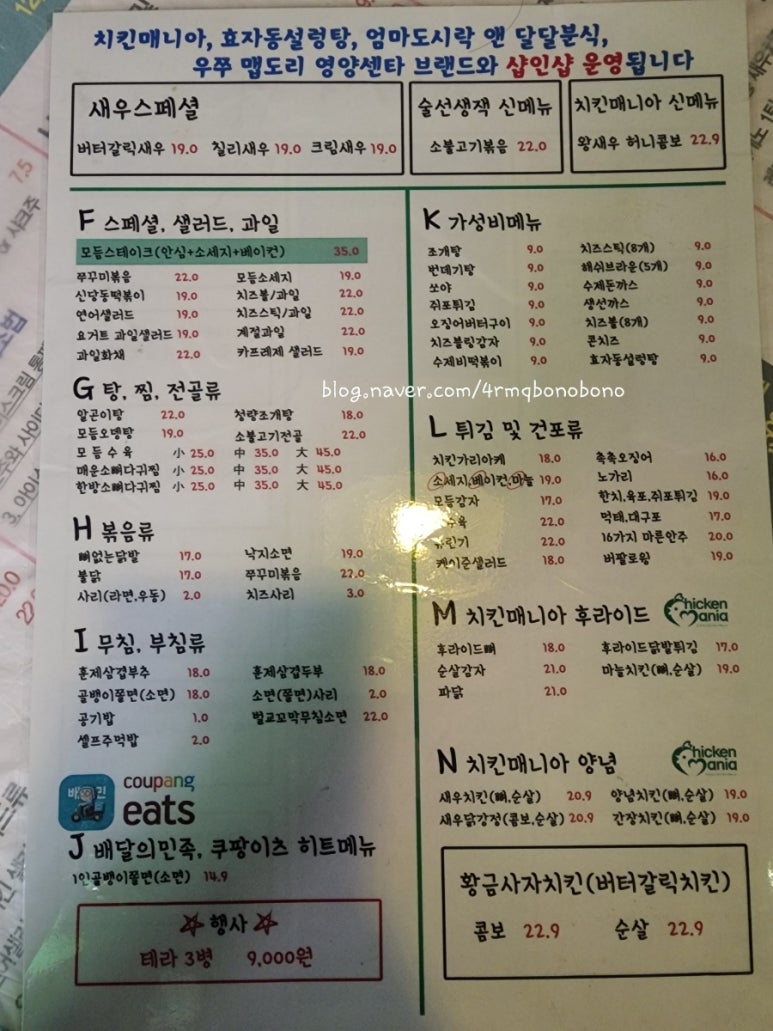 치킨매니아, 효자동설렁탕, 엄마도시락 앤 달달분식,
우쭈 맵도리 영양센타 브랜드와 샵인샵 운영됩니다
새우스페셜
버터갈릭새우 19.0 칠리새우 19.0 크림새우 19.0
술선생잭 신메뉴
소불고기볶음 22.0
치킨매니아 신메뉴
왕새우 허니콤보 22.9
F 스페셜, 샐러드, 과일
모듬스테이크(안심+소세지+베이컨) 35.0
쭈꾸미볶음 22.0 모듬소세지 19.0
신당동떡볶이 19.0 치즈볼/과일 22.0
연어샐러드 19.0 치즈스틱/과일 22.0
요거트 과일샐러드 19.0 계절과일 22.0
과일화채 22.0 카프레제 샐러드 19.0
G 탕, 찜, 전골류
알곤이탕 22.0 청량조개탕 18.0
모듬오뎅탕 19.0 소불고기전골 22.0
모듬수육 小 25.0 中 35.0 大 45.0
매운소뼈다귀찜 小 25.0 中 35.0 大 45.0
한방소뼈다귀찜 小 25.0 中 35.0 大 45.0
H 볶음류
뼈없는닭발 17.0 낙지소면 19.0
불닭 17.0 쭈꾸미볶음 22.0
사리(라면,우동) 2.0 치즈사리 3.0
I 무침, 부침류
훈제삼겹부추 18.0 훈제삼겹두부 18.0
골뱅이쫄면(소면) 18.0 소면(쫄면)사리 2.0
공기밥 1.0 벌교꼬막무침소면 22.0
셀프주먹밥 2.0
배민
coupang
eats
J 배달의민족, 쿠팡이츠 히트메뉴
1인골뱅이쫄면(소면) 14.9
행사
테라 3병 9,000원
K 가성비메뉴
조개탕 9.0 치즈스틱(8개) 9.0
번데기탕 9.0 해쉬브라운(5개) 9.0
쏘야 9.0 수제돈까스 9.0
쥐포튀김 9.0 생선까스 9.0
오징어버터구이 9.0 치즈볼(8개) 9.0
치즈볼링감자 9.0 콘치즈 9.0
수제비떡볶이 9.0 효자동설렁탕 9.0
blog.naver.com/4rmqbonobono
L 튀김 및 건포류
치킨가라아케 18.0 촉촉오징어 16.0
소세지,베이컨,마늘 19.0 노가리 16.0
모듬감자 17.0 한치,육포,쥐포튀김 19.0
수육 22.0 먹태,대구포 17.0
유린기 22.0 16가지 마른안주 20.0
케이준샐러드 18.0 버팔로윙 19.0
M 치킨매니아 후라이드
Chicken
Mania
후라이드뼈 18.0 후라이드닭발튀김 17.0
순살감자 21.0 마늘치킨(뼈,순살) 19.0
파닭 21.0
N 치킨매니아 양념
Chicken
Mania
새우치킨(뼈,순살) 20.9 양념치킨(뼈,순살) 19.0
새우닭강정(콤보,순살) 20.9 간장치킨(뼈,순살) 19.0
황금사자치킨(버터갈릭치킨)
콤보 22.9 순살 22.9